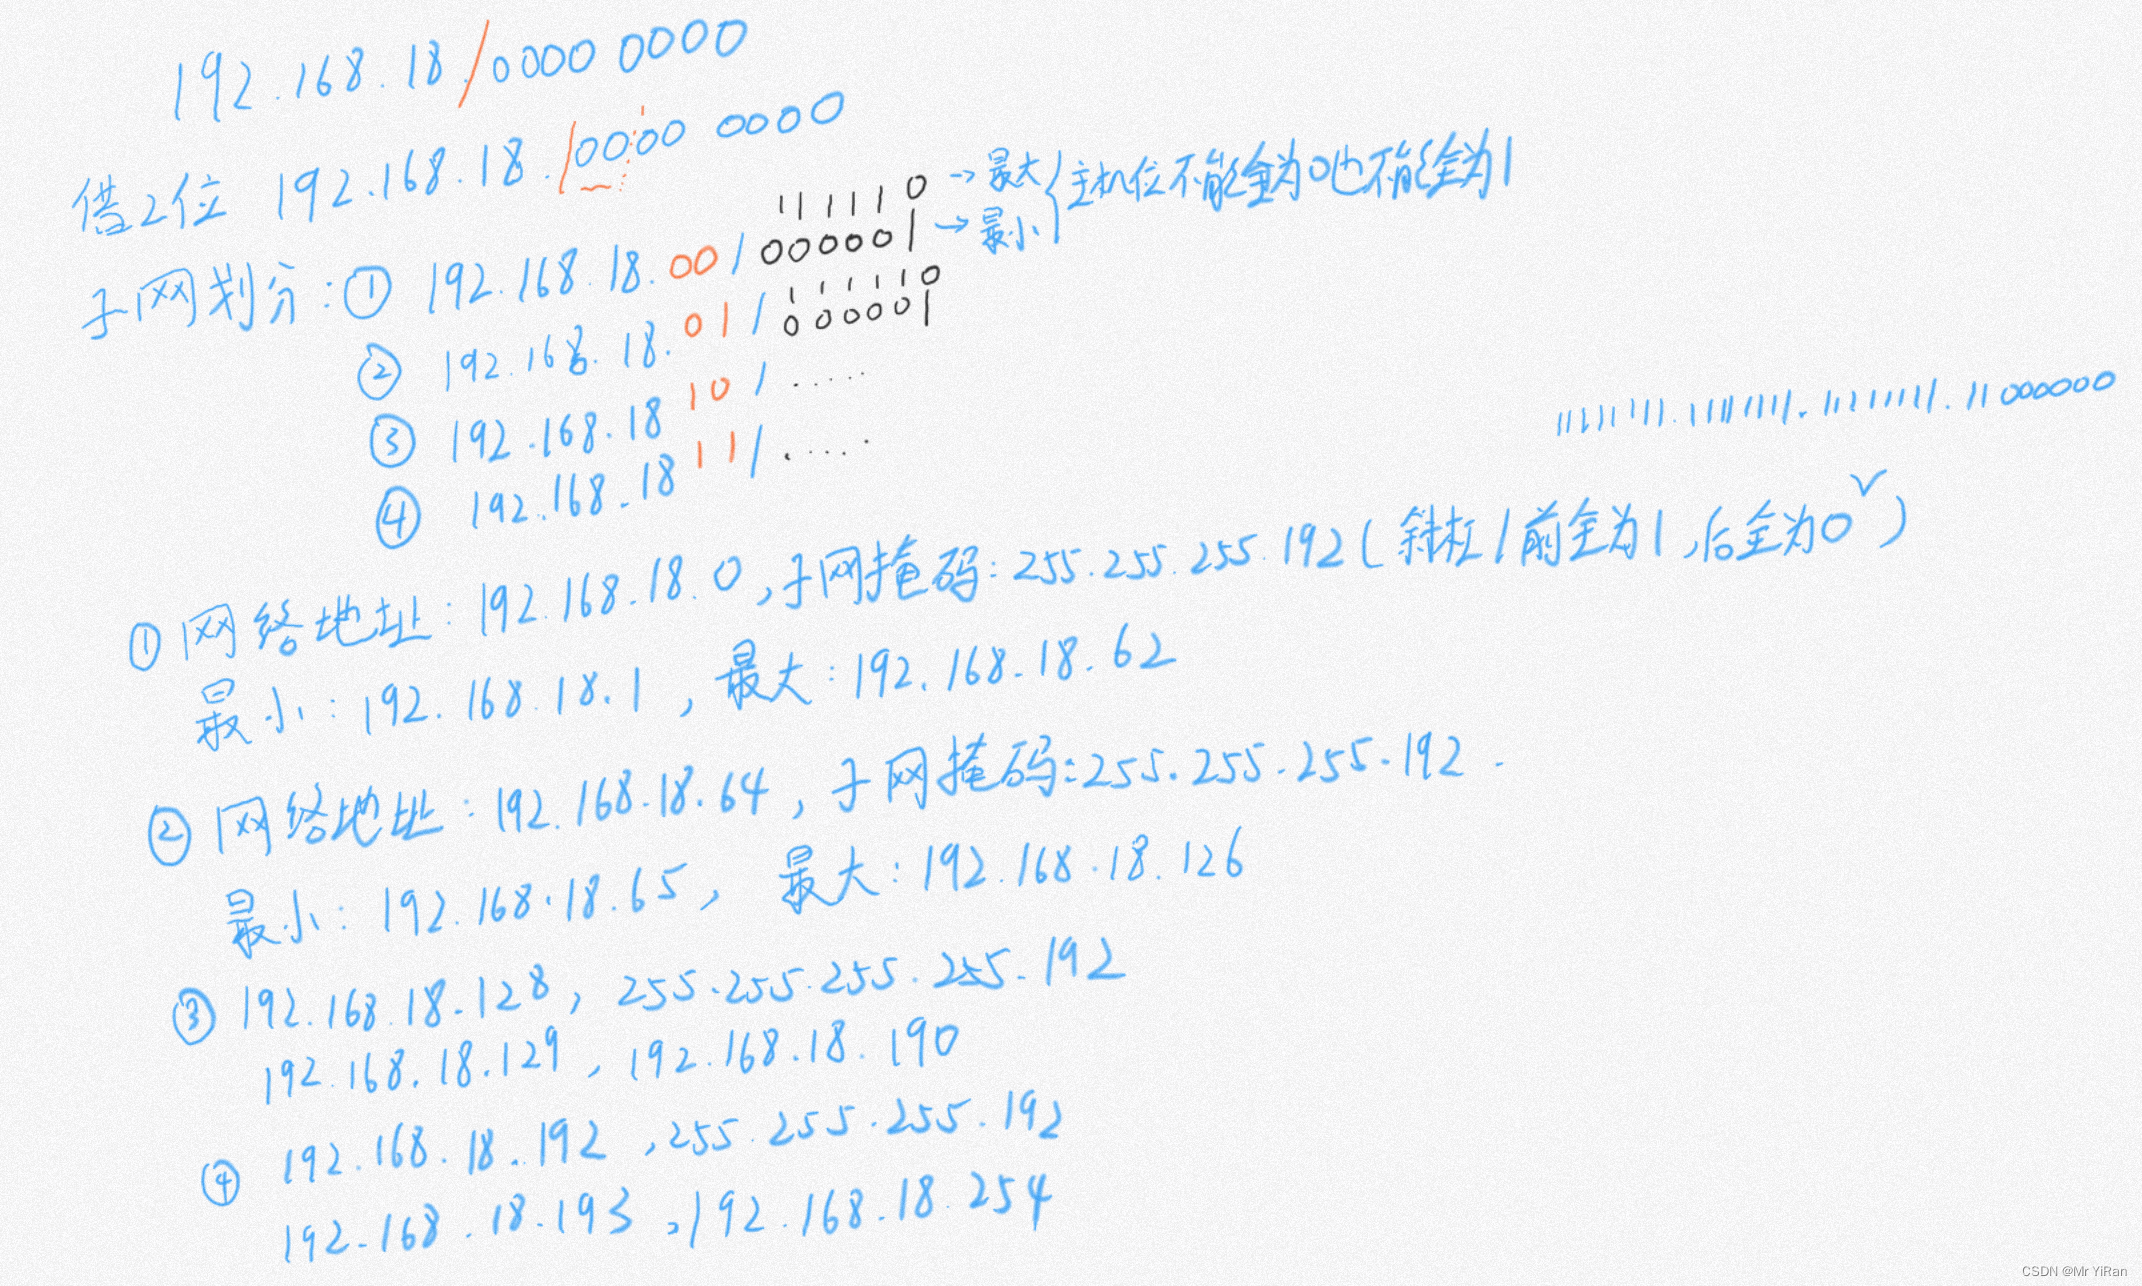 192.168.18./0000 0000
借2位 192.168.18./0000 0000
111110 →最大
000001 →最小
主机位不能全为0也不能全为1
子网划分:① 192.168.18.00/
111110
② 192.168.18.01/000001
③ 192.168.18 10/.....
④ 192.168.18 11/.....
11111111.11111111.11111111.11000000
①网络地址:192.168.18.0,子网掩码:255.255.255.192(斜杠/前全为1,后全为0)
最小:192.168.18.1,最大:192.168.18.62
②网络地址:192.168.18.64,子网掩码:255.255.255.192.
最小:192.168.18.65,最大:192.168.18.126
③192.168.18.128,255.255.255.255.192
192.168.18.129,192.168.18.190
④ 192.168.18.192,255.255.255.192
192.168.18.193,192.168.18.254
CSDN @Mr YiRan